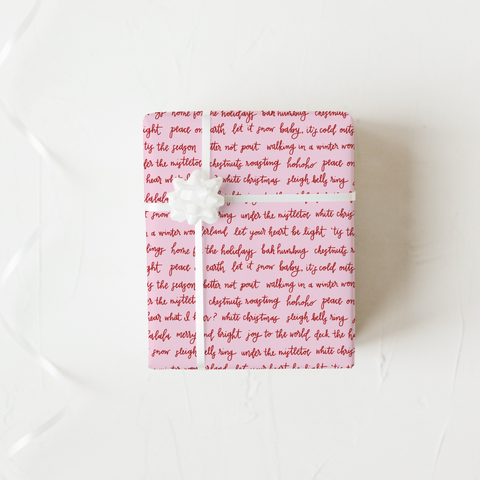 home for the holidays bah humbug chestnuts
ight peace on earth let it snow baby, it's cold outs
tis the season better not pout walking in a winter won
der the mistletoe chestnuts roasting hohoho peace on
hear what white christmas sleigh bells ring
lalala
snow ring under the mistletoe white chris
in a winter land let your heart be light 'tis th
dlings home for the holidays bah humbug chestnuts r
ight peace on earth let it snow baby, it's cold outs
tis the season better not pout walking in a winter won
der the mistletoe chestnuts roasting hohoho peace on
hear what I hear? white christmas sleigh bells ring
lalala merry and bright joy to the world deck the h
snow sleigh bells ring under the mistletoe white chris
a winter land let your heart be light 'tis the